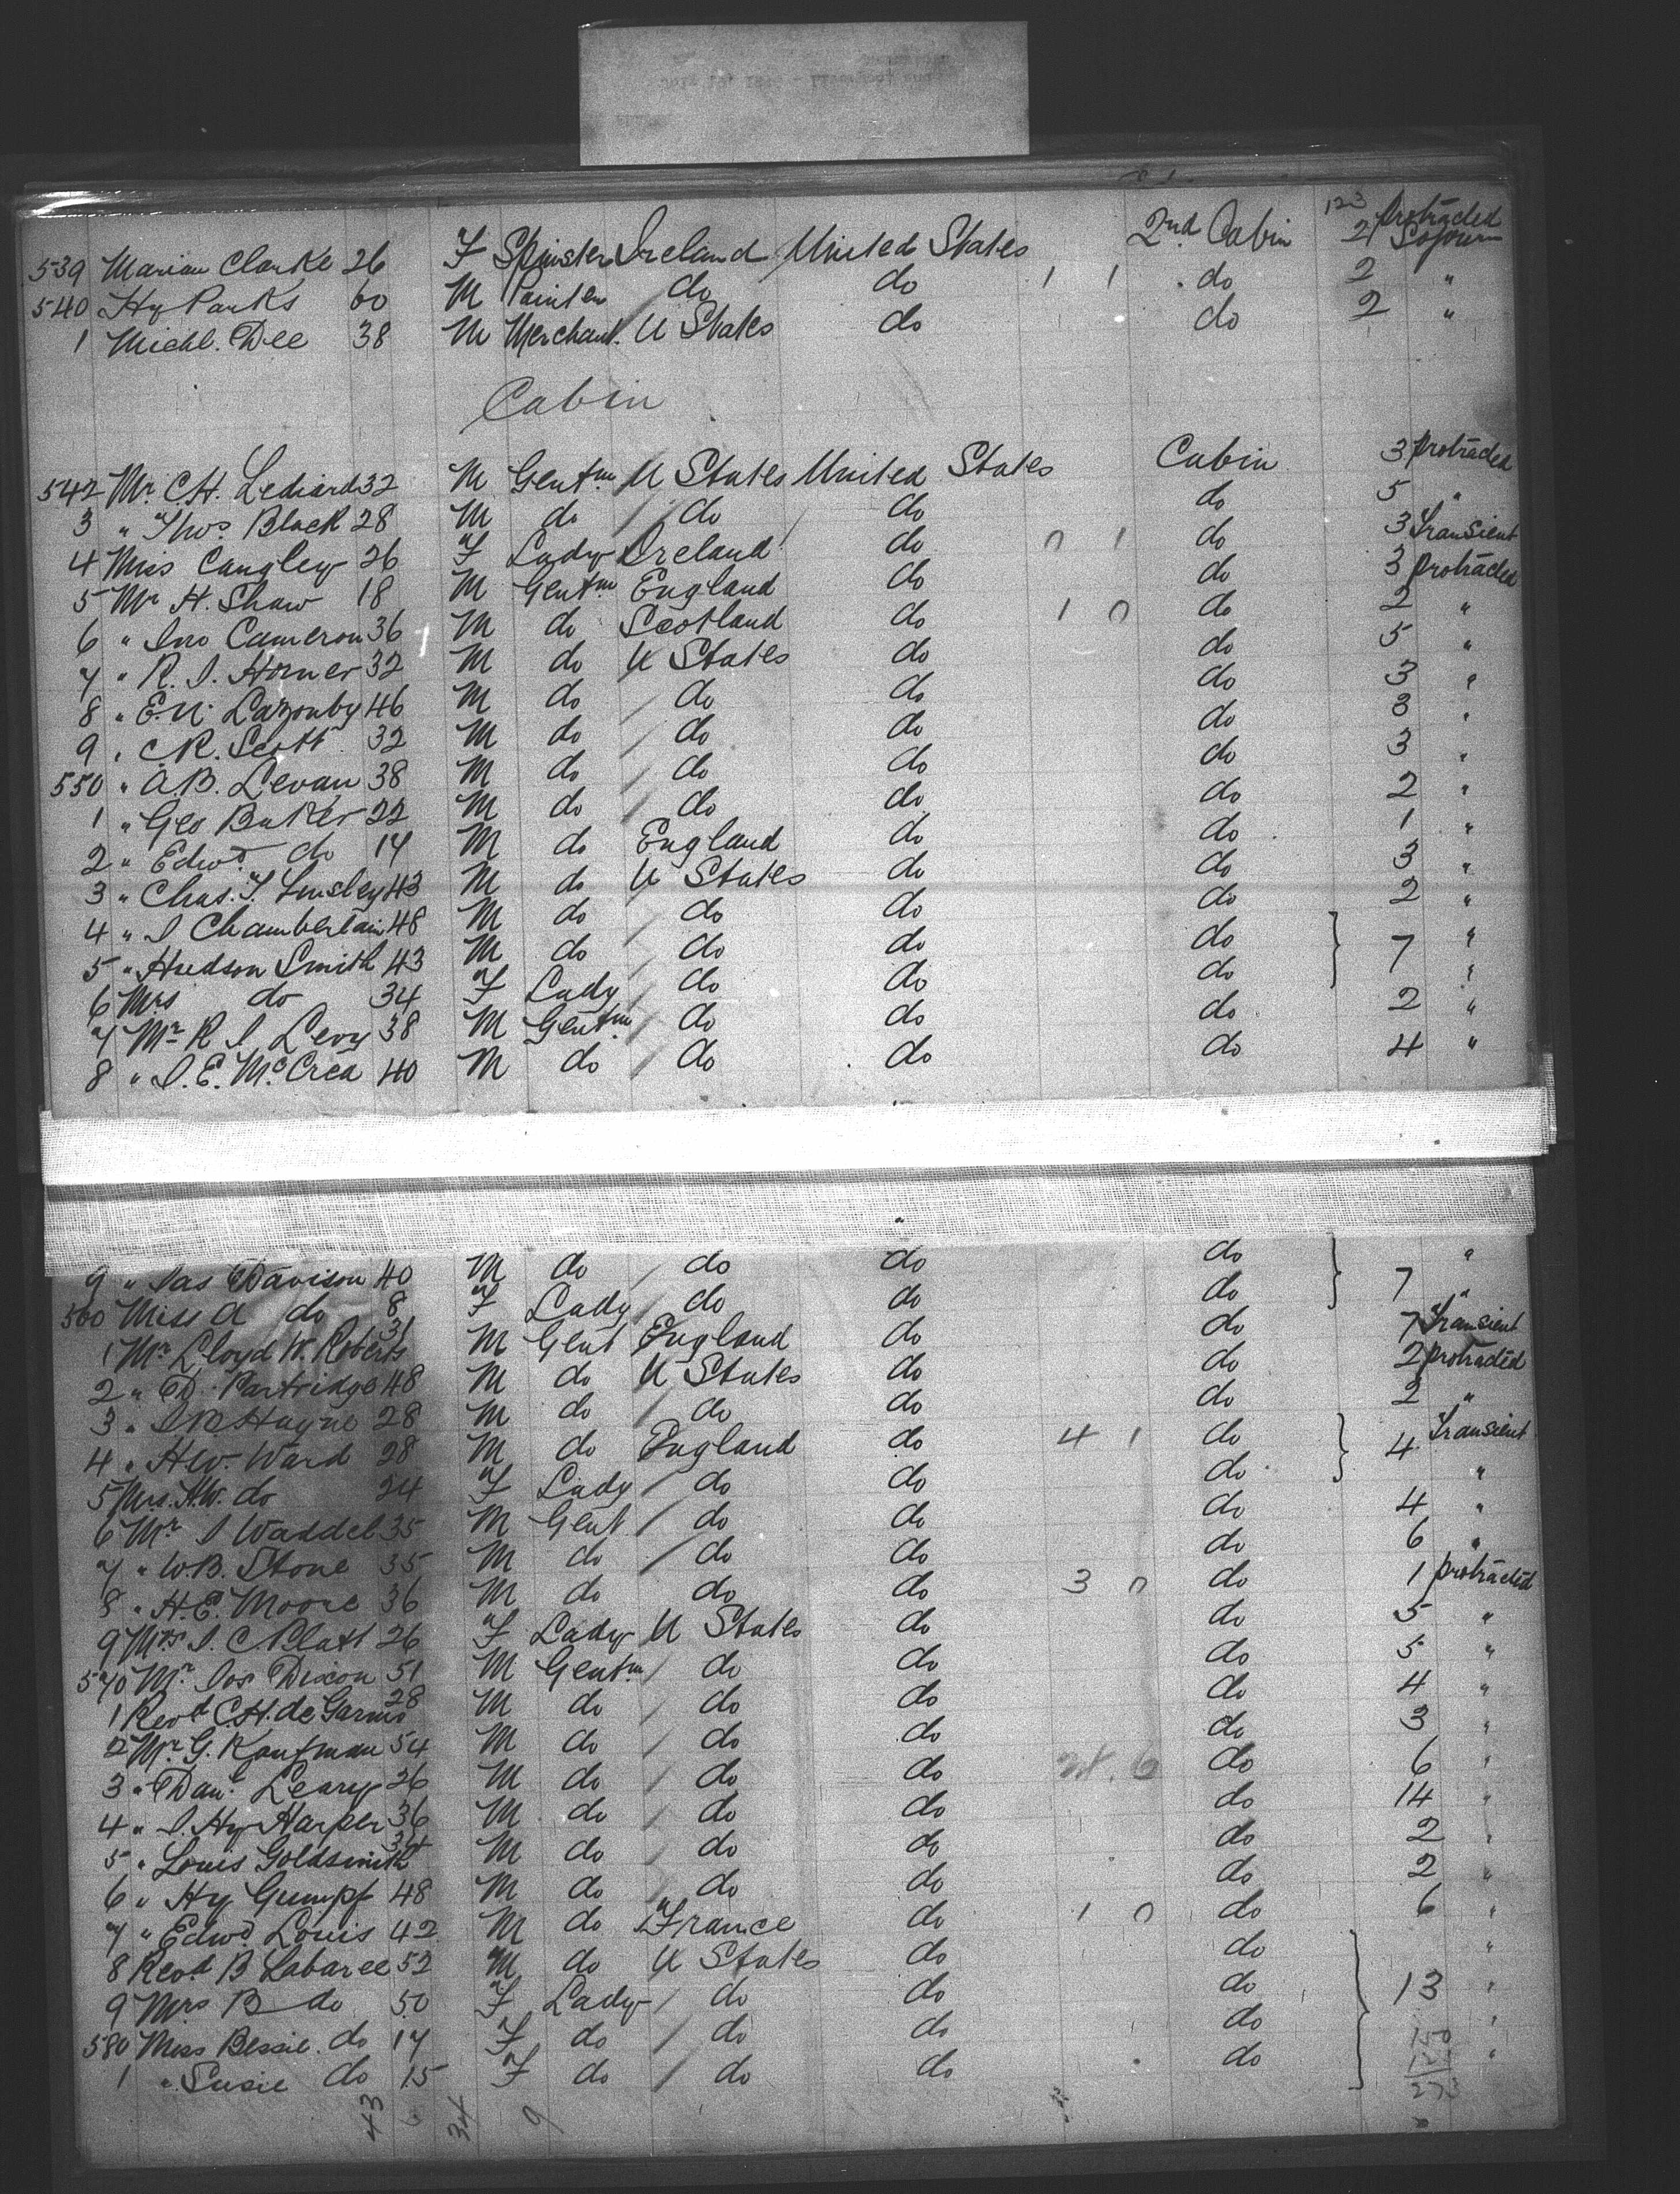 123 Protracted
539 Marian Clarke 26 F Spinster Ireland United States 2nd Cabin 2 Sojourn
540 Hy Parks 60 M Painter do do 1 1 do 2 "
1 Michl. Dee 38 M Merchant. U States do do 2 "
Cabin
542 Mr. C.H. Lediard 32 M Gentm U States United States Cabin 3 Protracted
3 " Thos. Black 28 M do / do do do 5 "
4 Miss Cangley 26 F Lady Ireland do 0 1 do 3 Transient
5 Mr H. Shaw 18 M Gentm England do do 3 Protracted
6 " Jno Cameron 36 M do Scotland do 1 0 do 2 "
7 " R. J. Horner 32 M do U States do do 5 "
8 " E.N. Lazonby 46 M do / do do do 3 "
9 " C.R. Scott 32 M do / do do do 3 "
550 " A.B. Levan 38 M do / do do do 3 "
1 " Geo Baker 22 M do / do do do 2 "
2 " Edwd. do 14 M do England do do 1 "
3 " Chas. T. Linsley 43 M do U States do do 3 "
4 " J Chamberlain 48 M do / do do do 2 "
5 " Hudson Smith 43 M do / do do do } 7 "
6 Mrs do 34 F Lady / do do do "
7 Mr R J Levy 38 M Gentm / do do do 2 "
8 " J. E. McCrea 40 M do / do do do 4 "
9 " Jas Davison 40 M do / do do do } "
560 Miss A do 8 F Lady / do do do 7 "
1 Mr Lloyd W. Roberts 31 M Gent England do do 7 Transient
2 " D. Partridge 48 M do U States do do 2 protracted
3 " Hayne 28 M do / do do do 2 "
4 " H.W. Ward 28 M do England do 4 1 do } 4 Transient
5 Mrs. H.W. do 24 F Lady / do do do "
6 Mr J Waddel 35 M Gent / do do do 4 "
7 " W.B. Stone 35 M do / do do do 6 "
8 " H.E. Moore 36 M do do do 3 0 do 1 protracted
9 Mrs J. C Platt 26 F Lady U States do do 5 "
570 Mr. Jos Dixon 51 M Gentm / do do do 5 "
1 Revd C.H. de Garmo 28 M do / do do do 4 "
2 Mr. G. Kaufman 54 M do / do do do 3 "
3 " Danl. Leary 26 M do / do do 24. 6 do 6 "
4 " J. Hy Harper 36 M do / do do do 14 "
5 " Louis Goldsmith 34 M do / do do do 2 "
6 " Hy Gumpf 48 M do / do do do 2 "
7 " Edwd. Louis 42 M do France do 1 0 do 6 "
8 Revd B Labaree 52 M do U States do do } "
9 Mrs B do 50 F Lady / do do do 13 "
580 Miss Bessie. do 14 F do / do do do "
1 " Susie do 15 F do / do do do "
43 34 9